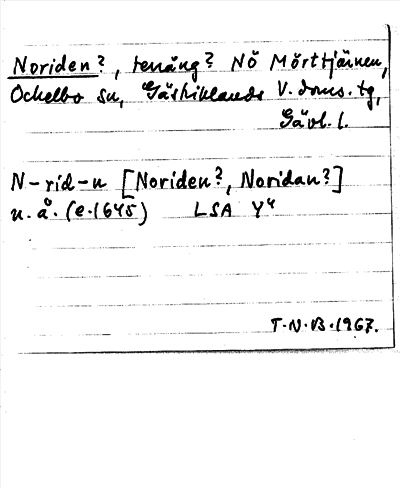 Noriden?, terräng? NÖ Mörttjärnen,
Ockelbo sn, Gästriklands V. doms. tg,
Gävl. l.
N-rid-n [Noriden?, Noridan?]
n. å. (e. 1645) LSA Y4
T.N.B. 1967.